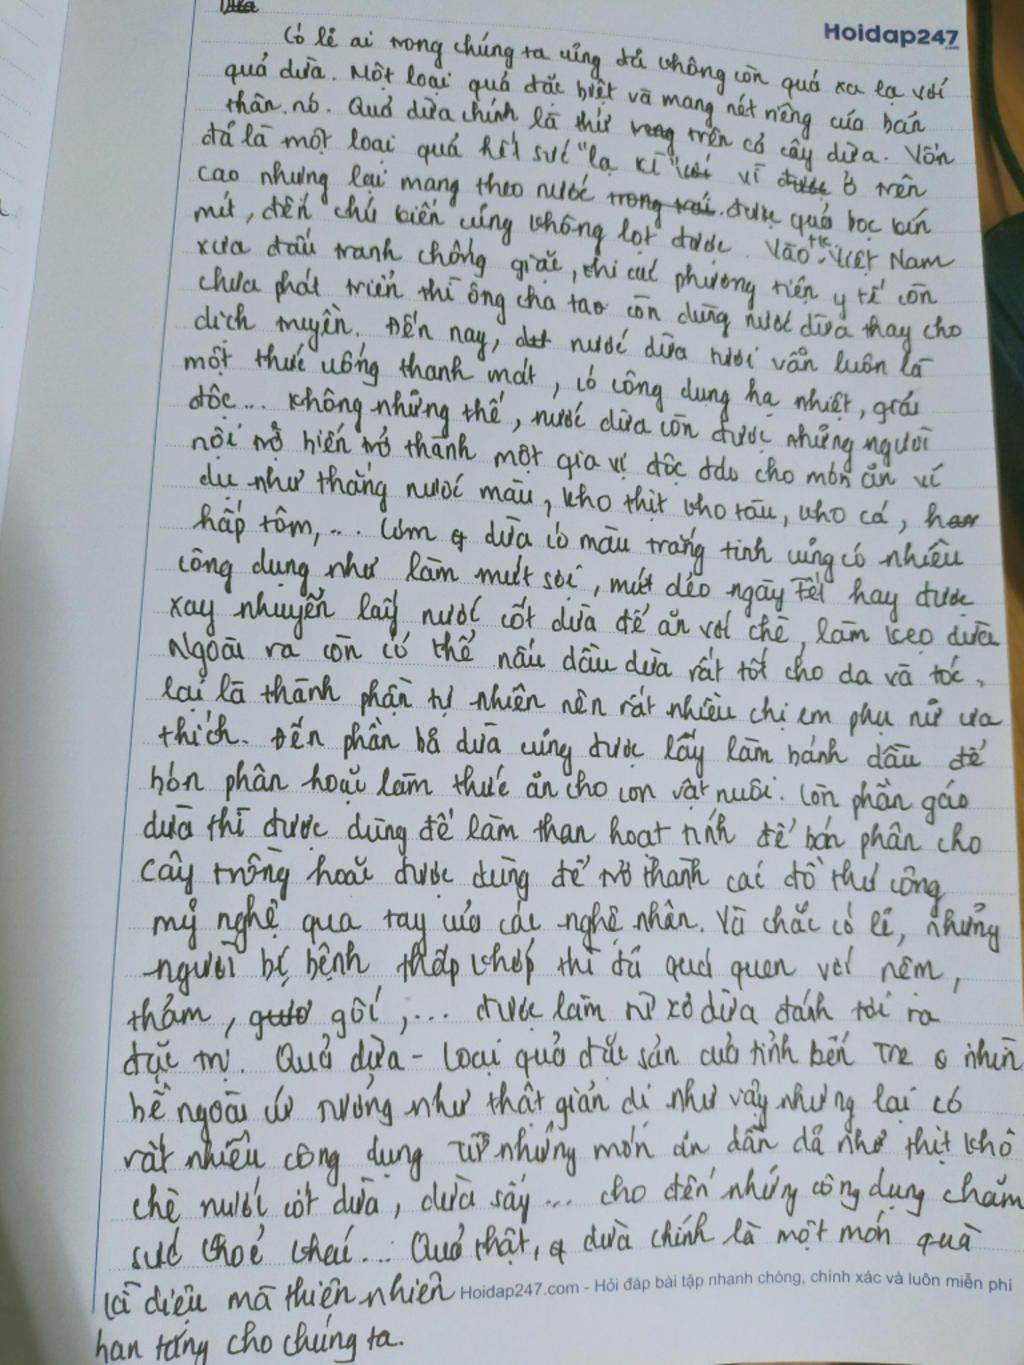 Dừa
Hoidap247
.com
Có lẽ ai trong chúng ta cũng đã không còn quá xa lạ với
quả dừa. Một loại quả đặc biệt và mang nét riêng của bản
thân nó. Quả dừa chính là thứ trên cả cây dừa. Vốn
đã là một loại quả hết sức "lạ kì" vì ở trên
cao nhưng lại mang theo nước trong trái. được quả bọc kín
mít, đến chú kiến cũng không lọt được. Vào TK Việt Nam
xưa đấu tranh chống giặc, khi các phương tiện y tế còn
chưa phát triển thì ông cha ta còn dùng nước dừa thay cho
dịch truyền. Đến nay, nước dừa tươi vẫn luôn là
một thức uống thanh mát, có công dụng hạ nhiệt, giải
độc... Không những thế, nước dừa còn được những người
nội trợ biến trở thành một gia vị độc đáo cho món ăn ví
dụ như thắng nước màu, kho thịt kho tàu, kho cá,
hấp tôm,... Cơm q dừa có màu trắng tinh cũng có nhiều
công dụng như làm mứt sợi, mứt dẻo ngày Tết hay được
xay nhuyễn lấy nước cốt dừa để ăn với chè, làm kẹo dừa
Ngoài ra còn có thể nấu dầu dừa rất tốt cho da và tóc,
lại là thành phần tự nhiên nên rất nhiều chị em phụ nữ ưa
thích. Đến phần bã dừa cũng được lấy làm bánh dầu để
bón phân hoặc làm thức ăn cho con vật nuôi. Còn phần gáo
dừa thì được dùng để làm than hoạt tính để bón phân cho
cây trồng hoặc được dùng để trở thành các đồ thủ công
mỹ nghệ qua tay của các nghệ nhân. Và chắc có lẽ, những
người bị bệnh thấp khớp thì đã quá quen với nệm,
thảm, gối,... được làm từ xơ dừa đánh tơi ra
đặc trị. Quả dừa - loại quả đặc sản của tỉnh Bến Tre nhìn
bề ngoài cứ tưởng như thật giản dị như vậy nhưng lại có
rất nhiều công dụng từ những món ăn dân dã như thịt kho
chè nước cốt dừa, dừa sấy... cho đến những công dụng chăm
sức khoẻ khác... Quả thật, q dừa chính là một món quà
kì diệu mà thiên nhiên
Hoidap247.com - Hỏi đáp bài tập nhanh chóng, chính xác và luôn miễn phí
ban tặng cho chúng ta.